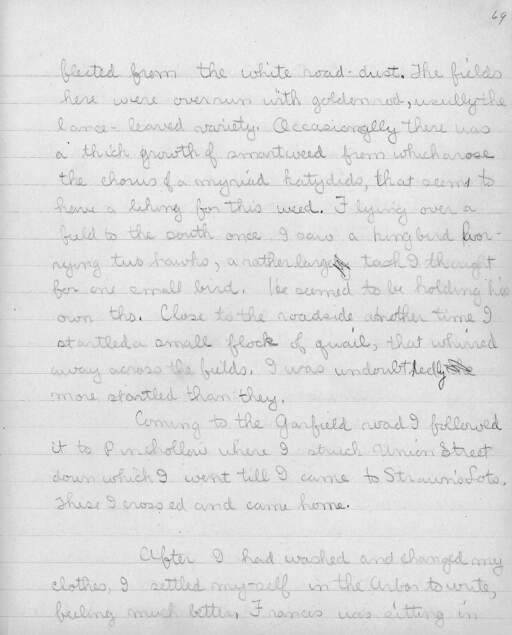 69
flected from the white road-dust. The fields
here were overrun with goldenrod, usully the
lance-leaved variety. Occasionglly there was
a thick growth of smartweed from which arose
the chorus of a myriad katydids, that seems to
have a liking for this weed. Flying over a
field to the south once I saw a kingbird wor-
rying two hawks, a rather large task I thought
for one small bird. He seemed to be holding his
own tho. Close to the roadside another time I
startled a small flock of quail, that whirred
away across the fields. I was undoubtedly
more startled than they.
Coming to the Garfield road I followed
it to Pinchollow where I struck Union Street
down which I went till I came to Strawn's Lots.
These I crossed and came home.
After I had washed and changed my
clothes, I settled my-self in the Arbor to write,
feeling much better. Francis was sitting in